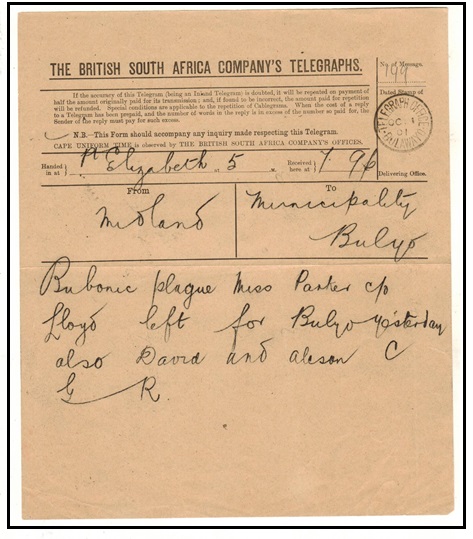 THE BRITISH SOUTH AFRICA COMPANY'S TELEGRAPHS.
No. of Message.
199
Dated Stamp of
If the accuracy of this Telegram (being an Inland Telegram) is doubted, it will be repeated on payment of
half the amount originally paid for its transmission; and, if found to be incorrect, the amount paid for repetition
will be refunded. Special conditions are applicable to the repetition of Cablegrams. When the cost of a reply
to a Telegram has been prepaid, and the number of words in the reply is in excess of the number so paid for, the
Sender of the reply must pay for such excess.
TELEGRAPH OFFICE
OC
01
BULAWAYO
N.B.—This Form should accompany any inquiry made respecting this Telegram.
CAPE UNIFORM TIME is observed by THE BRITISH SOUTH AFRICA COMPANY'S OFFICES.
Handed in at Pt Elizabeth at 5 Received here at 7 96
Delivering Office.
From
To
Midland
Municipality
Bulyo
Bubonic plague Miss Parter c/o
Lloyd left for Bulyo yesterday
also David and C
G R.